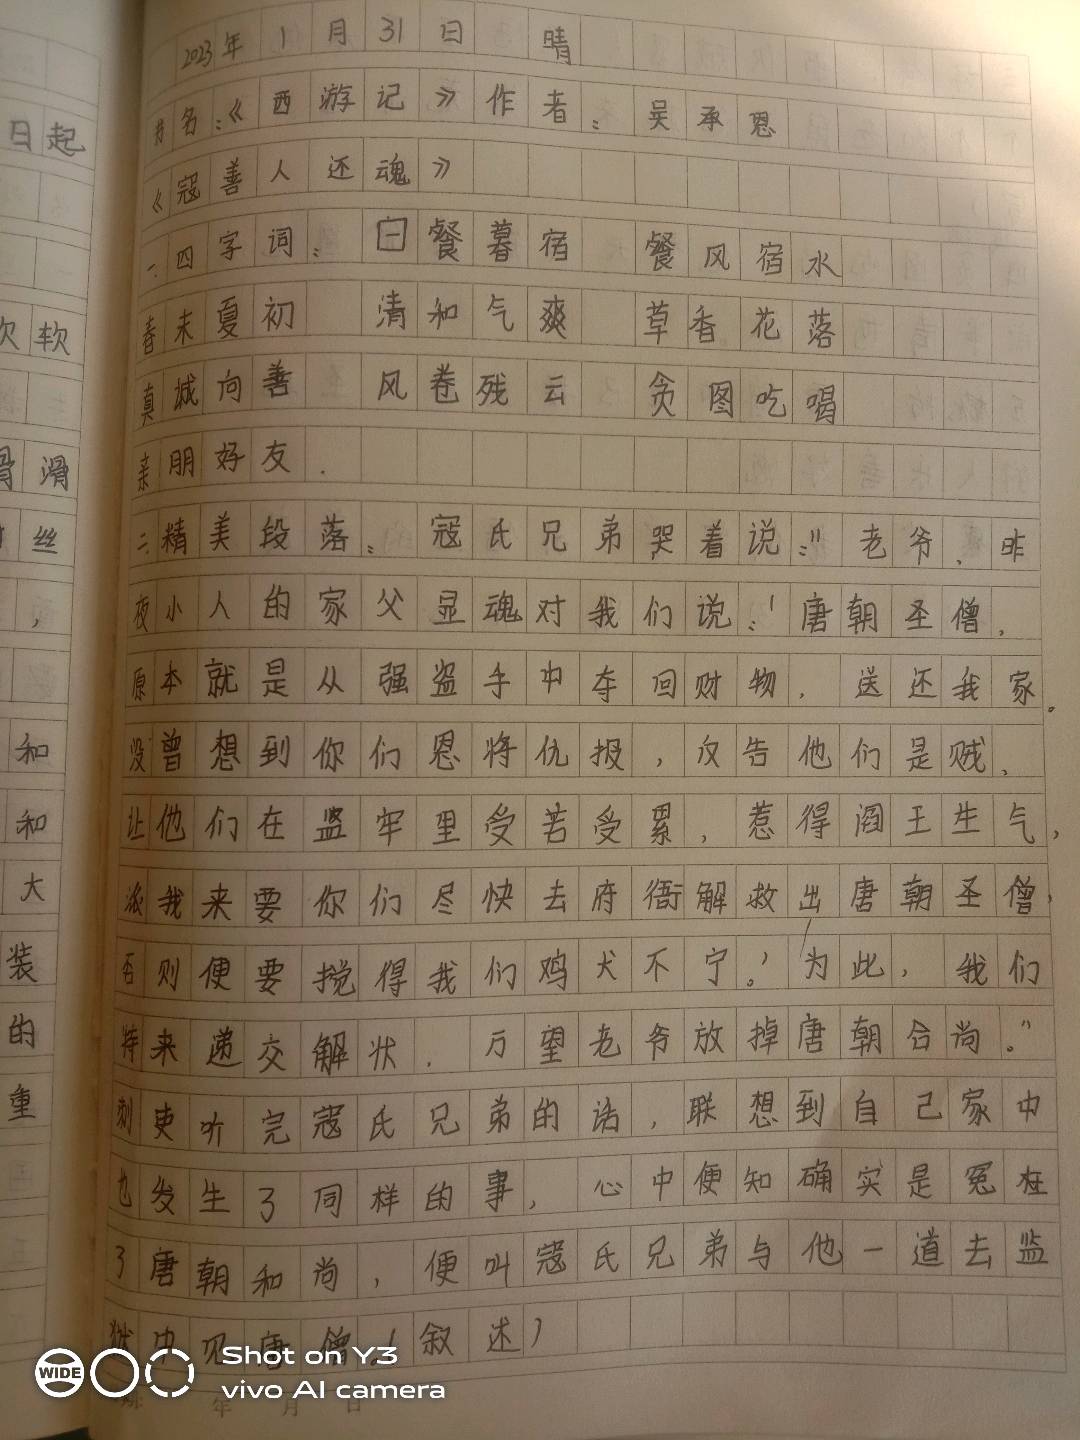 2023年1月31日 晴
书名:《西游记》作者:吴承恩
《寇善人还魂》
一.四字词: 日餐暮宿 餐风宿水
春末夏初 清和气爽 草香花落
真诚向善 风卷残云 贪图吃喝
亲朋好友.
二.精美段落: 寇氏兄弟哭着说:"老爷,昨
夜小人的家父显魂对我们说:'唐朝圣僧,
原本就是从强盗手中夺回财物,送还我家。
没曾想到你们恩将仇报,反告他们是贼,
让他们在监牢里受苦受累,惹得阎王生气,
派我来要你们尽快去府衙解救出唐朝圣僧,
否则便要搅得我们鸡犬不宁。'为此,我们
特来递交解状.万望老爷放掉唐朝合尚。"
刺吏听完寇氏兄弟的话,联想到自己家中
也发生了同样的事,心中便知确实是冤在
了唐朝和尚,便叫寇氏兄弟与他一道去监
狱中见唐僧。(叙述)
日起
软
滑
丝
,
和
和
大
装
的
重
WIDE
Shot on Y3
vivo AI camera
年 月 日